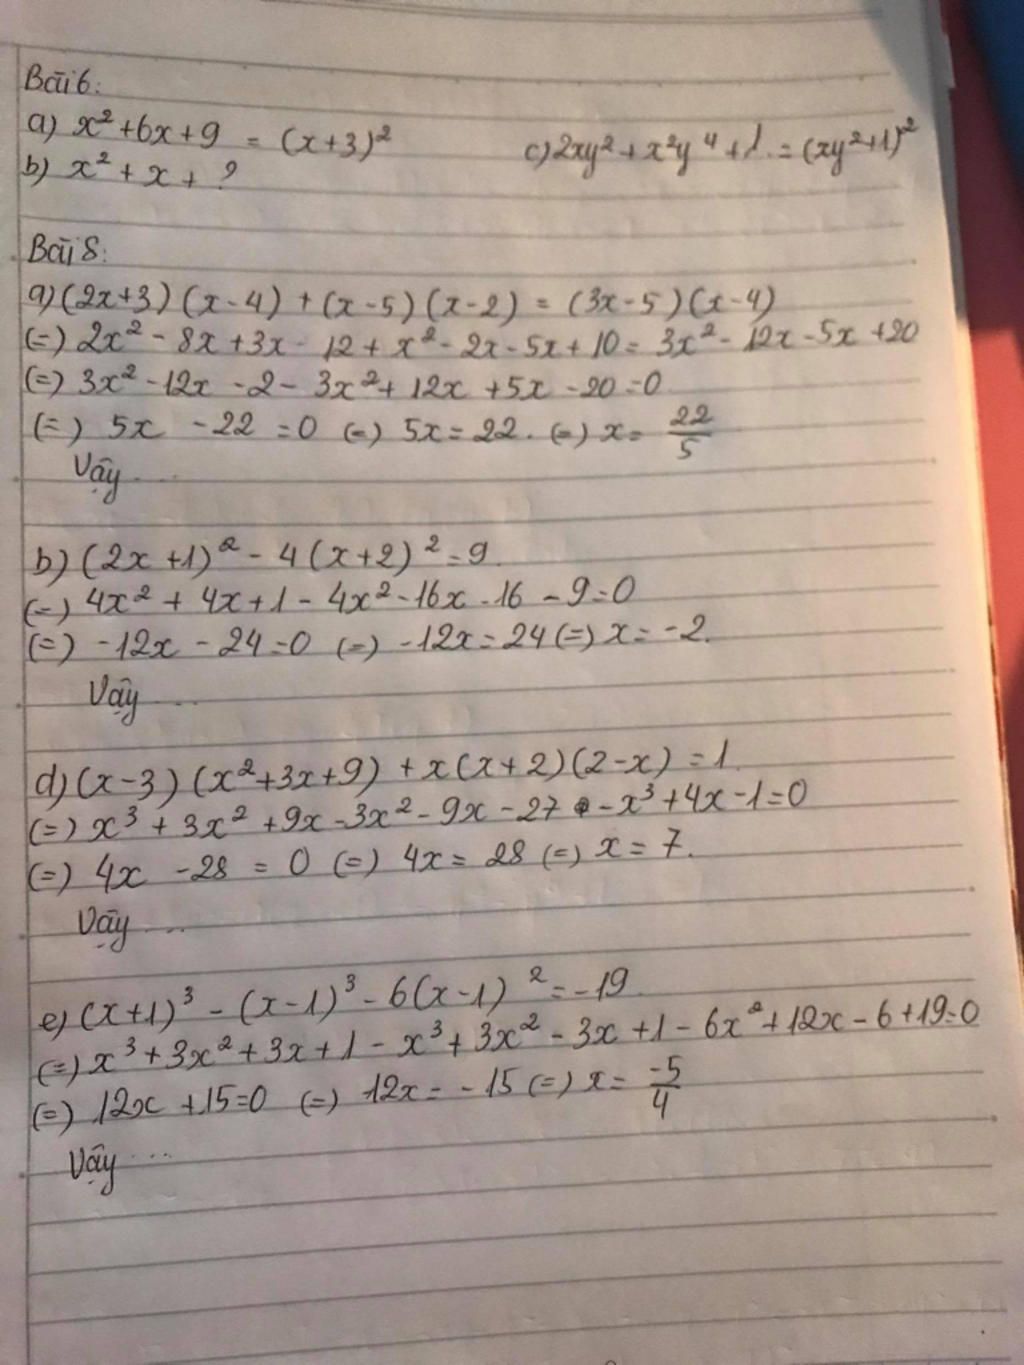 Bài 6:
a) x² + 6x + 9 = (x+3)²
c) 2xy² + x²y⁴ + 1 = (xy²+1)²
b) x² + x + ?
Bài 8:
a) (2x+3)(x-4) + (x-5)(x-2) = (3x-5)(x-4)
(=) 2x² - 8x + 3x - 12 + x² - 2x - 5x + 10 = 3x² - 12x - 5x + 20
(=) 3x² - 12x - 2 - 3x² + 12x + 5x - 20 = 0
(=) 5x - 22 = 0 (=) 5x = 22. (=) x = 22/5
Vậy ....
b) (2x+1)² - 4(x+2)² = 9.
(=) 4x² + 4x + 1 - 4x² - 16x - 16 - 9 = 0
(=) -12x - 24 = 0 (=) -12x = 24 (=) x = -2.
Vậy ....
d) (x-3)(x²+3x+9) + x(x+2)(2-x) = 1.
(=) x³ + 3x² + 9x - 3x² - 9x - 27 - x³ + 4x - 1 = 0
(=) 4x - 28 = 0 (=) 4x = 28 (=) x = 7.
Vậy ....
e) (x+1)³ - (x-1)³ - 6(x-1)² = -19.
(=) x³ + 3x² + 3x + 1 - x³ + 3x² - 3x + 1 - 6x² + 12x - 6 + 19 = 0
(=) 12x + 15 = 0 (=) 12x = -15 (=) x = -5/4
Vậy ...